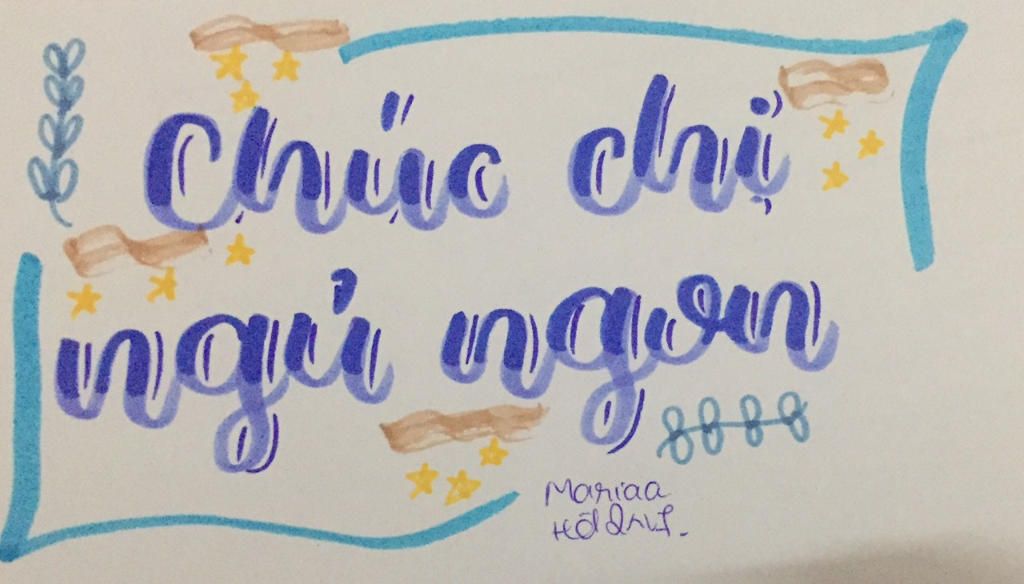 Chúc chị
ngủ ngon
Mariaa